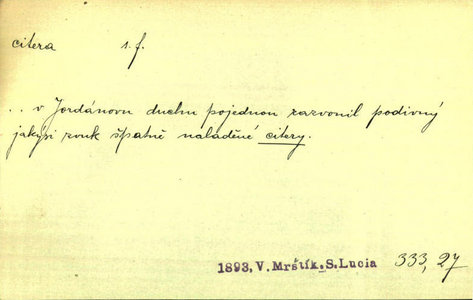 citera s. f.
.. v Jordánovu duchu pojednou zazvonil podivný
jakýsi zvuk špatně naladěné citery.
1893, V. Mrštík. S. Lucia 333, 27